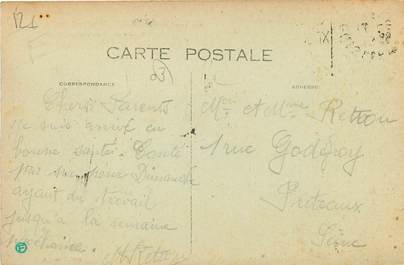 121
CARTE POSTALE
CORRESPONDANCE
ADRESSE
Chers Parents
Je suis arrivé en
bonne santé.
Dimanche
ayant du travail
jusqu'a la semaine
prochaine.
Mr et Mme
1 rue Godefroy
Puteaux
Seine